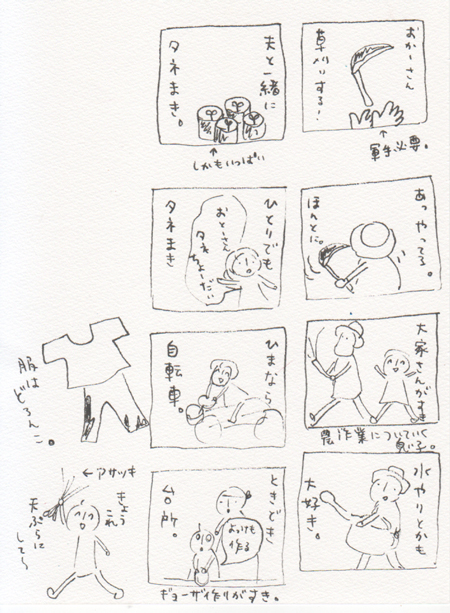 おかーさん
草刈りする！
↑
軍手必要。
あっやってる。
ほんとに。
大家さんがすき
農作業についていく
水やりとかも
大好き。
夫と一緒に
タネまき。
↑
しかもいっぱい
ひとりでも
タネまき
おとーさん
タネ
ちょーだい
ひまなら
自転車。
ときどき
台所。
おつけも
作る
ギョーザ作りがすき。
服は
どろんこ。
←アサツキ
きょう
これ
天ぷらに
して〜